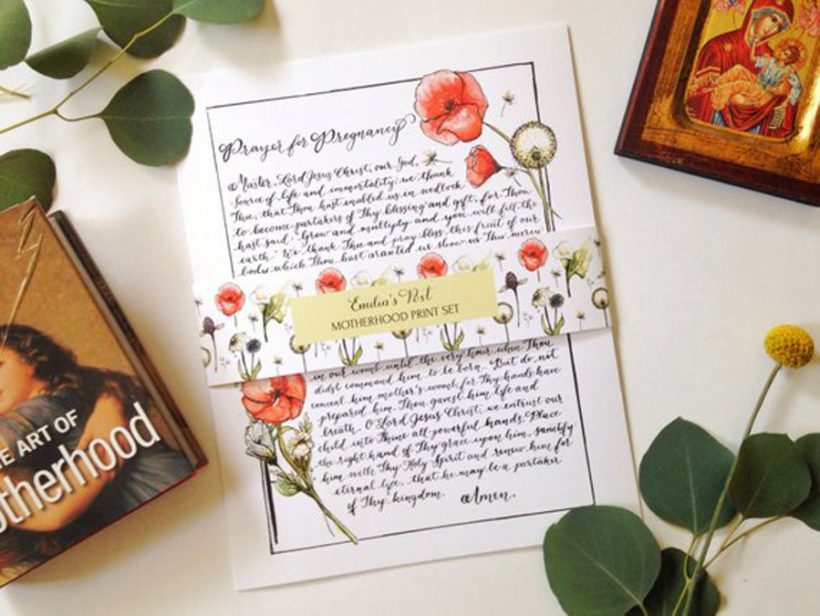 Prayer for Pregnancy
Master, Lord Jesus Christ, our God,
Source of life and immortality: we thank
Thee, that Thou hast enabled us in wedlock
to become partakers of Thy blessing and gift; for Thou
hast said: "Grow and multiply and you will fill the
earth." We thank Thee and pray: bless this fruit of our
body which Thou hast granted us show us Thee mercy
Emilia's Post
MOTHERHOOD PRINT SET
in our womb until the very hour when Thou
didst command him to be born. But do not
conceal him mother's womb, for Thy hands have
prepared him. Thou gavest him life and
breath. O Lord Jesus Christ, we entrust our
child into Thine all-powerful hands. Place
the right hand of Thy grace upon him, sanctify
him with Thy Holy Spirit and renew him for
eternal life, that he may be a partaker
of Thy kingdom. Amen.
HE ART OF
otherhood